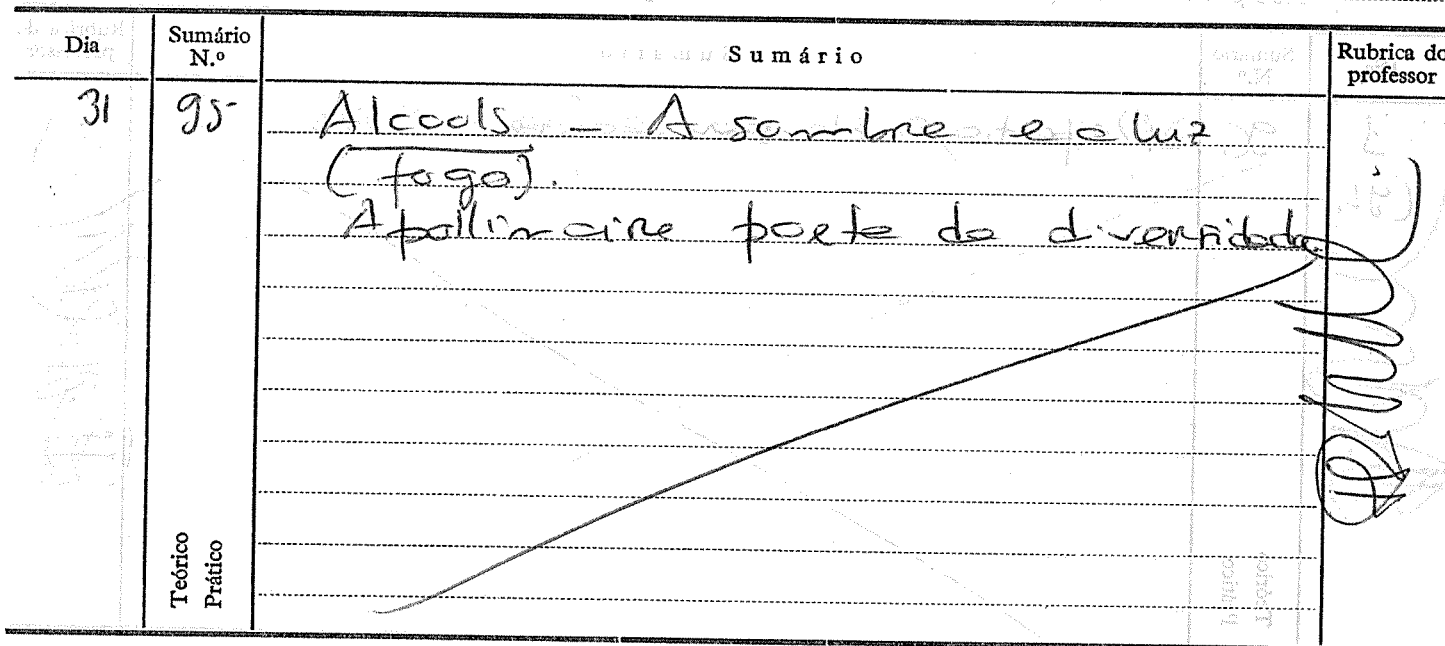 Dia Sumário N.º Sumário Rubrica do professor
31 95 Alcools - A sombra e a luz
(fogo).
Apollinaire poeta da diversidade
Teórico
Prático